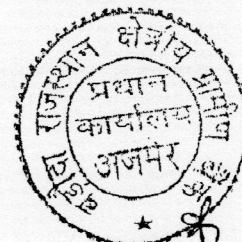 बड़ौदा राजस्थान क्षेत्रीय ग्रामीण बैंक
प्रधान
कार्यालय
अजमेर